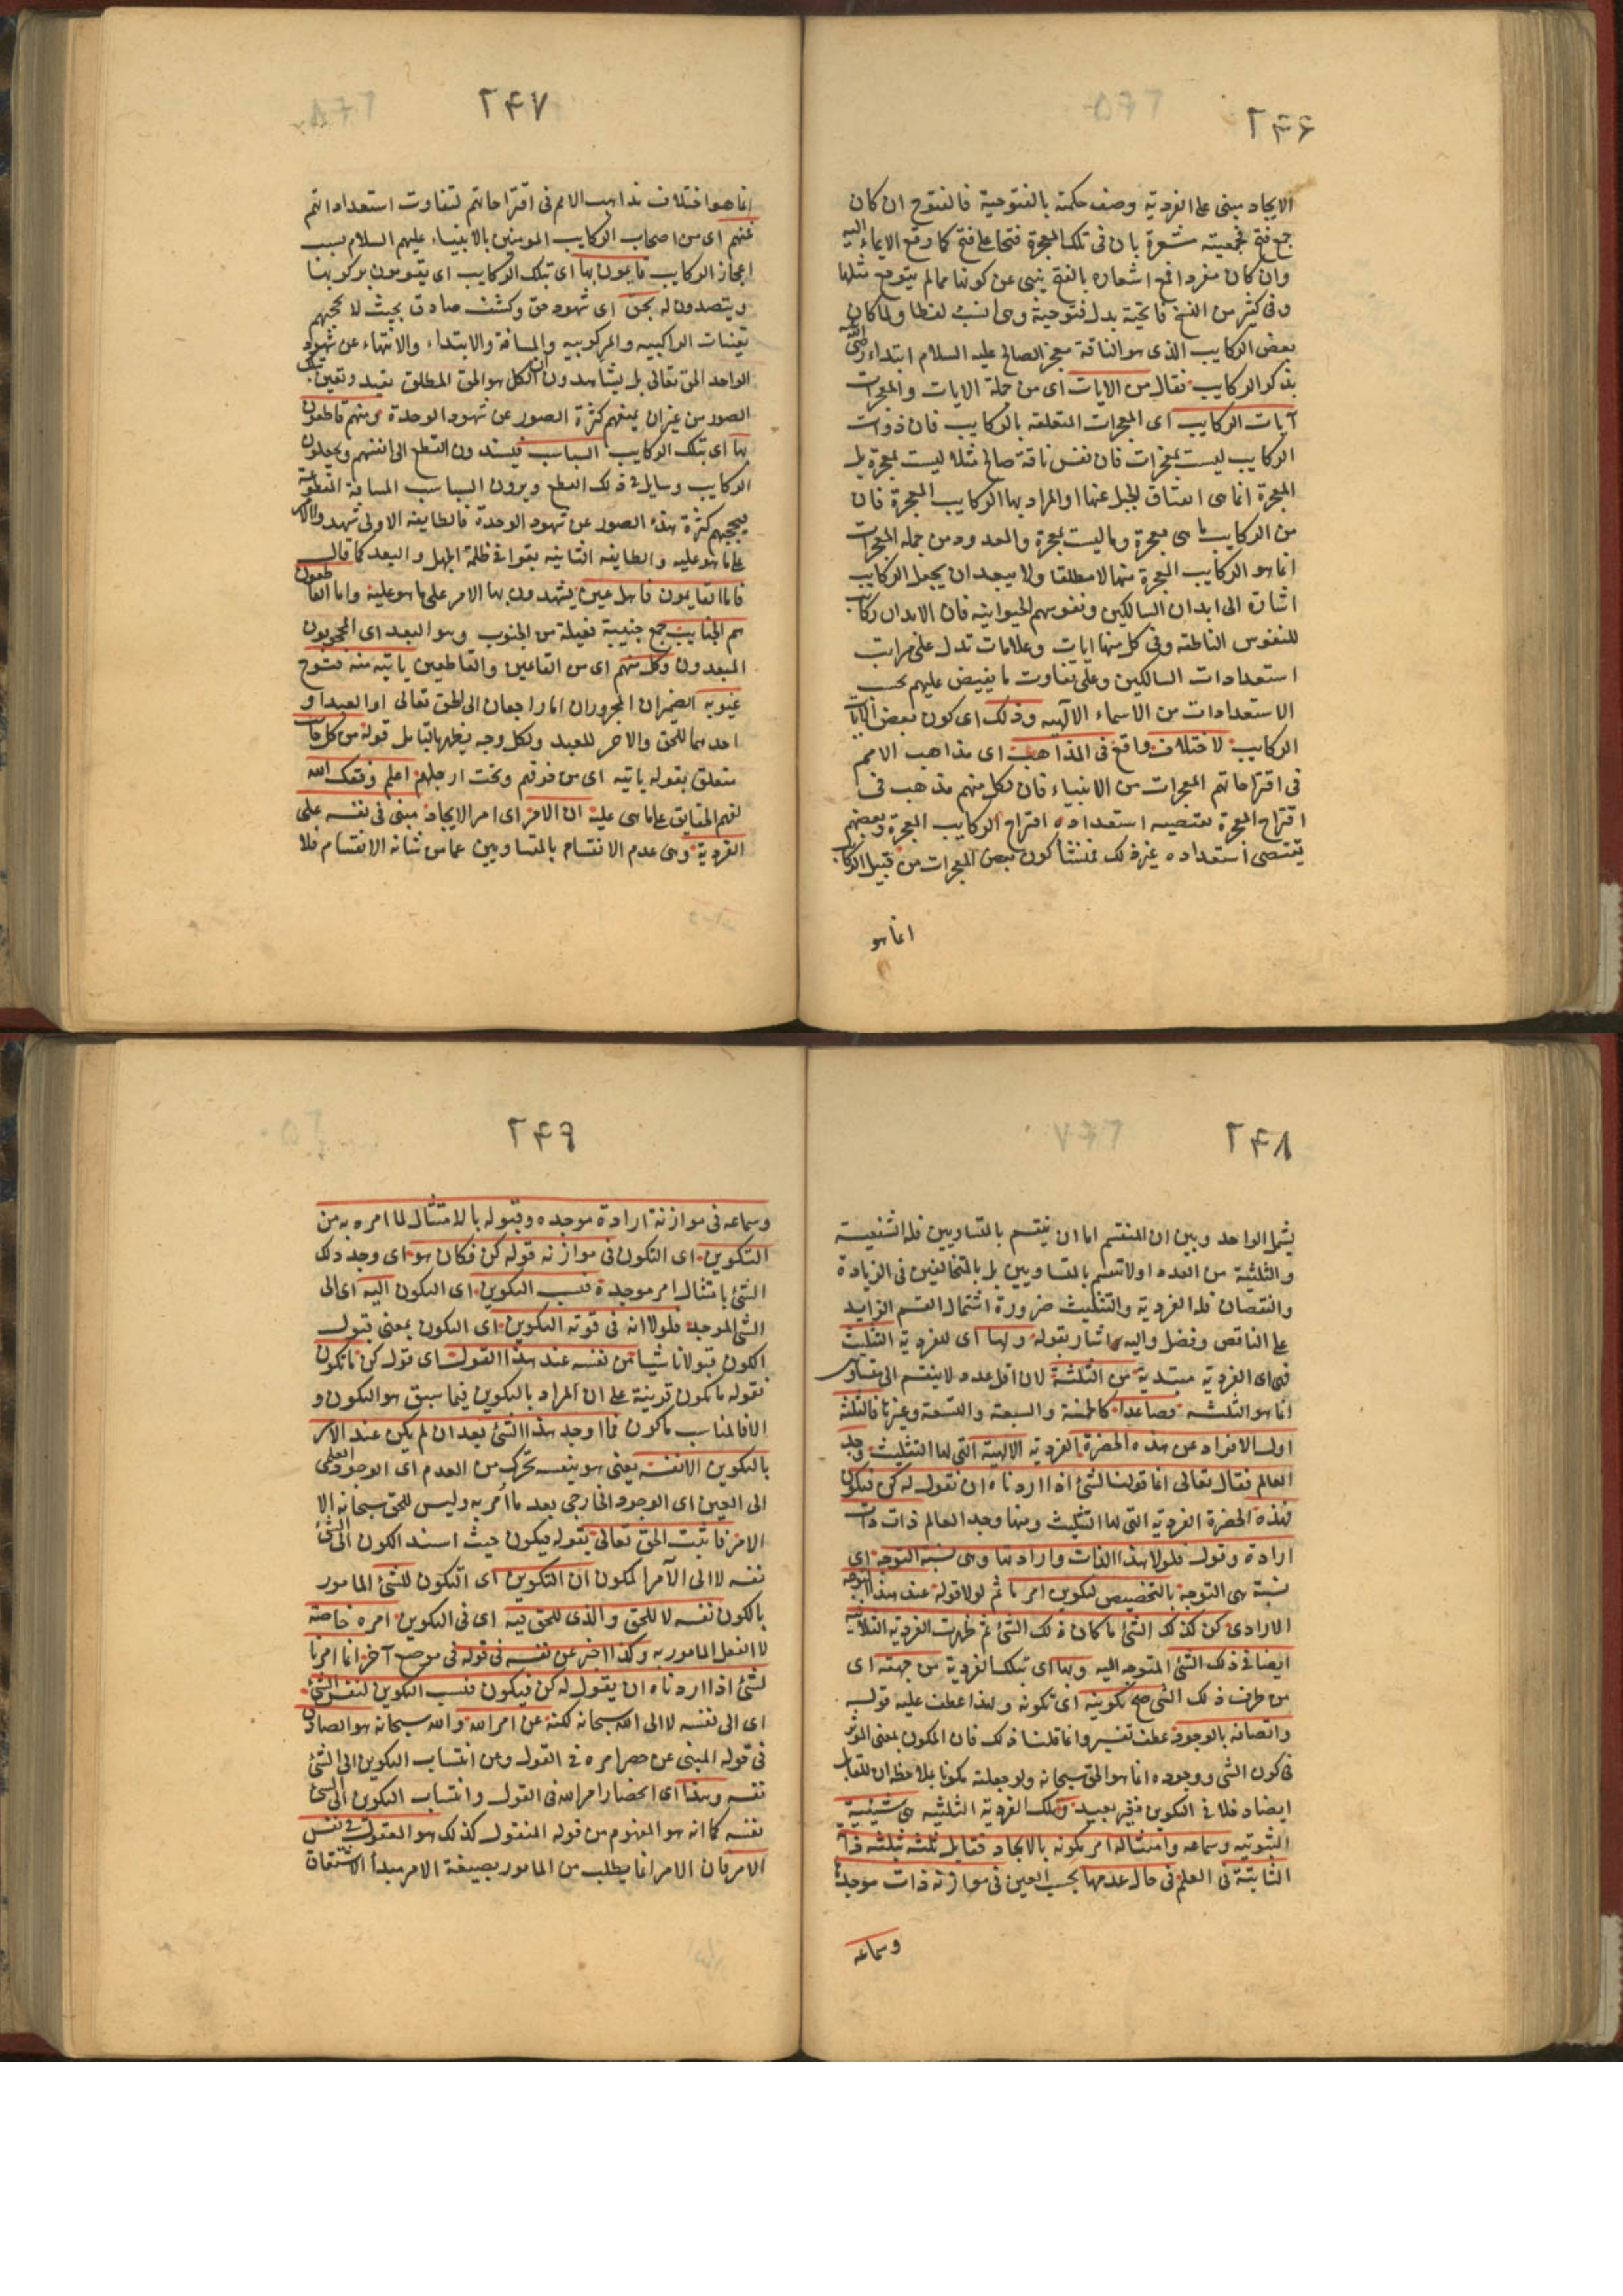 ٢٤٦
الايجاد مبنى على الفردية وصف حكمته بالفتوحية فالفتوح ان كان
جمع فتح فجمعيته مشعرة بان فى تلك المعجزة فتحا على فتح كما وقع الايماء اليه
وان كان مفردا فمع اشعاره بالفتح ينبى عن كونها مما لم يتوقع مثلها
وفى كثير من النسخ فاتحية بدل فتوحية وهى انسب لفظا ولما كان
بعض الركايب الذى هو الناقة معجز الصالح عليه السلام ابتداء
بذكر الركايب فقال من الايات اى من جملة الايات والمعجزات
آيات الركايب اى المعجزات المتعلقة بالركايب فان ذوات
الركايب ليست بمعجزات فان نفس ناقة صالح مثلا ليست بمعجزة بل
المعجزة انما هى انشقاق الجبل عنها او المراد بها الركايب المعجزة فان
من الركايب ما هى معجزة وما ليست بمعجزة والمعدود من جملة المعجزات
انما هو الركايب المعجزة منها لا مطلقا ولا يبعد ان يجعل الركايب
اشارة الى ابدان السالكين ونفوسهم الحيوانية فان الابدان ركايب
للنفوس الناطقة وفى كل منها ايات وعلامات تدل على مراتب
استعدادات السالكين وعلى تفاوت ما يفيض عليهم بحسب
الاستعدادات من الاسماء الالهيه وذلك اى كون بعض الايات
الركايب لاختلاف واقع فى المذاهب اى مذاهب الامم
فى اقتراحاتهم المعجزات من الانبياء فان لكل منهم مذهب فى
اقتراح المعجزة بعضهم يقتضيه استعداده اقتراح الركايب المعجزة وبعضهم
يقتضى استعداده غير ذلك فمنشأ كون بعض المعجزات من قبيل الركايب
انما هو
٢٤٧
انما هو اختلاف مذاهب الامم فى اقتراحاتهم لتفاوت استعداداتهم
فمنهم اى من اصحاب الركايب المومنين بالانبياء عليهم السلام بسبب
اعجاز الركايب قايمون بها اى بتلك الركايب اى يقومون بركوبها
ويتصدون له بحق اى شهود حق وكشف صادق بحيث لا يحجبهم
تعينات الراكبيه والمركوبيه والمسافة والابتداء والانتهاء عن شهود
الواحد الحق تعالى بل يشاهدون ان الكل هو الحق المطلق تقيد وتعين بتلك
الصور من غير ان يمنعهم كثرة الصور عن شهود الوحدة ومنهم قاطعون
بها اى بتلك الركايب السباسب فيسندون القطع الى انفسهم ويجعلون
الركايب وسايل فى ذلك القطع ويرون السباسب المسافة المقطوعة
فيحجبهم كثرة هذه الصور عن شهود الوحدة فالطايفة الاولى شهدوا الامر
على ما هو عليه والطايفه الثانيه بقوا فى ظلمة الجهل والبعد كما قال
فاما القايمون فاهل عين يشهدون بها الامر على ما هو عليه واما القاطعون
هم الجنايب جمع جنيبة فعيلة من الجنوب وهو البعد اى المحجوبون
المبعدون وكل منهم اى من القايمين والقاطعين ياتيه منه فتوح
غيوبه الضميران المجروران اما راجعان الى الحق تعالى او العبد او
احدهما للحق والاخر للعبد ولكل وجه يظهر بالتامل قوله من كل جانب
متعلق بقوله ياتيه اى من فوقهم وتحت ارجلهم اعلم وفقك الله
لفهم الحقايق على ما هى عليه ان الامر اى امر الايجاد مبنى فى نفسه على
الفردية وهى عدم الانقسام بالمتساويين عما من شانه الانقسام فلا
٢٤٨
يشمل الواحد وبين ان المنقسم اما ان ينقسم بالمتساويين فله الشفعية
والثلثية من العدد او لا ينقسم بالمتساويين بل بالمتخالفين فى الزيادة
والنقصان فله الفردية والتثليث ضرورة اشتمال القسم الزايد
على الناقص وفضل واليه اشار بقوله ولها اى للفردية التثليث
فهى اى الفردية مبتدية من الثلثة لان اقل عدد لا ينقسم الى متساويين
انما هو الثلثة فصاعدا كالخمسة والسبعة والتسعة وغيرها فالثلثة
اول الافراد عن هذه الحضرة الفردية الالهية التى لها التثليث وجد
العالم فقال تعالى انما قولنا لشئ اذا اردناه ان نقول له كن فيكون
فهذه الحضرة الفردية التى لها التثليث ومنها وجد العالم ذات ذات
ارادة وقول فلولا هذا الذات وارادتها وهى نسبة التوجه اى
نسبة هى التوجه بالتخصيص لتكوين امر ما ثم لولا قوله عند هذا التوجه
الارادى كن كذلك الشئ ما كان ذلك الشئ ثم ظهرت الفردية الثلاثية
ايضا فى ذلك الشئ المتوجه اليه وبها اى بتلك الفردية من جهته اى
من طرف ذلك الشئ صح تكوينه اى تكونه ولهذا عطف عليه قوله
واتصافه بالوجود عطف تفسير وانما قلنا ذلك فان المكون بمعنى الموثر
فى كون الشئ ووجوده انما هو الحق سبحانه ولو جعلته مكونا بملاحظة ان للقابل
ايضا دخلا فى التكوين فغير بعيد وتلك الفردية الثلثيه هى شيئيته
الثبوتيه وسماعه وامتثاله امر مكونه بالايجاد فقابل ثلثه بثلثه ذاته
الثابتة فى العلم فى حال عدمها بحسب العين فى موازنة ذات موجدها
وسماعه
٢٤٩
وسماعه فى موازنة ارادة موجده وقبوله بالامتثال لما امره به من
التكوين اى التكون فى موازنه قوله كن فكان هو اى وجد ذلك
الشئ بامتثال امر موجدة فنسب التكوين اى التكون اليه اى الى
الشئ الموجد فلولا انه فى قوته التكوين اى التكون بمعنى قبول
الكون قبولا ناشيا من نفسه عند هذا القول اى قول كن ما تكون
فقوله ما تكون قرينة على ان المراد بالتكوين فيما سبق هو التكون و
الا فالمناسب ما كون فما اوجد هذا الشئ بعد ان لم يكن عند الامر
بالتكوين الا نفسه يعنى هو بنفسه تحرك من العدم اى الوجود العلمى
الى العين اى الوجود الخارجى بعد ما امر به وليس للحق سبحانه الا
الامر فاثبت الحق تعالى بقوله فيكون حيث اسند الكون الى الشئ
نفسه لا الى الآمر المكون ان التكوين اى التكون للشئ المامور
بالكون نفسه لا للحق والذى للحق فيه اى فى التكوين امره خاصة
لا الفعل المامور به وكذا اخبر عن نفسه فى قوله فى موضع آخر انما امرنا
لشئ اذا اردناه ان يقول له كن فيكون فنسب التكوين لنفس الشئ
اى الى نفسه لا الى الله سبحانه لكنه عن امر الله والله سبحانه هو الصادق
فى قوله المبنى عن حصر امره فى القول وعن انتساب التكوين الى الشئ
نفسه وهذا اى انحصار امر الله فى القول وانتساب التكوين الى الشئ
نفسه كما انه هو المفهوم من قوله المنقول كذلك هو المعقول فى نفس
الامر فان الامر انما يطلب من المامور بصيغة الامر مبدأ الاشتقاق